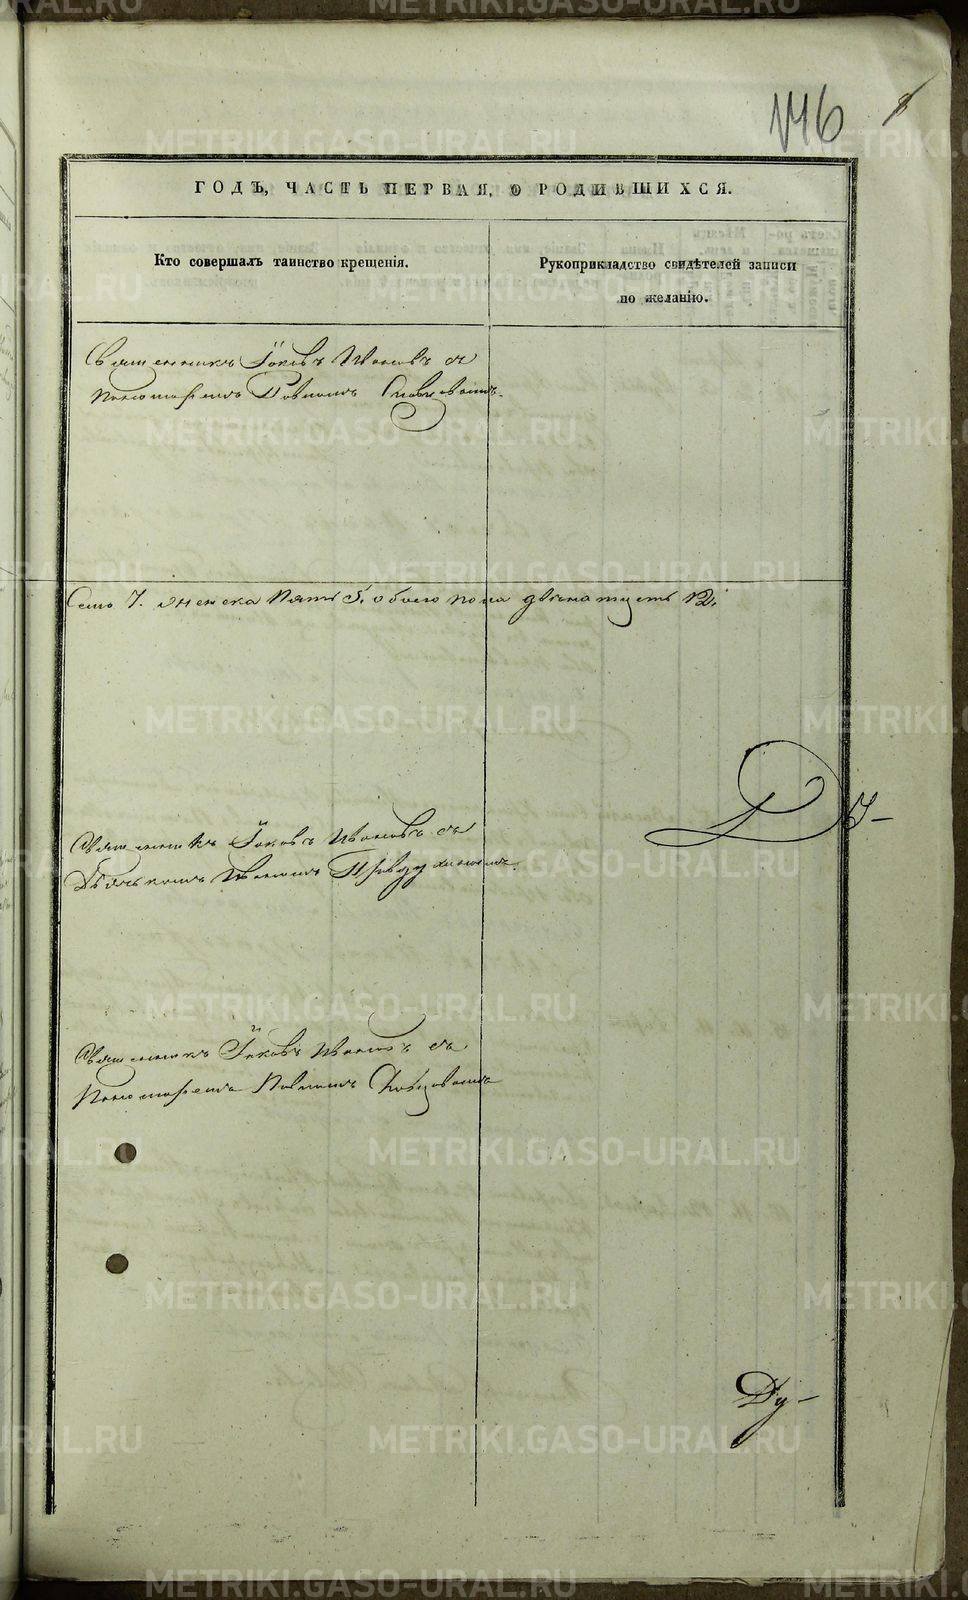 146
ГОДЪ, ЧАСТЬ ПЕРВАЯ, О РОДИВШИХСЯ.
Кто совершалъ таинство крещенія.
Рукоприкладство свидѣтелей записи
по желанію.
Священникъ Іаковъ Ивановъ съ
Пономаремъ Павломъ
Семь 7. женска Пять 5. обоего пола двѣнатцеть 12.
Священникъ Іаковъ Ивановъ съ
Дьячкомъ Иваномъ
Священникъ Іаковъ Ивановъ съ
Пономаремъ Павломъ
Ду-
METRIKI.GASO-URAL.RU